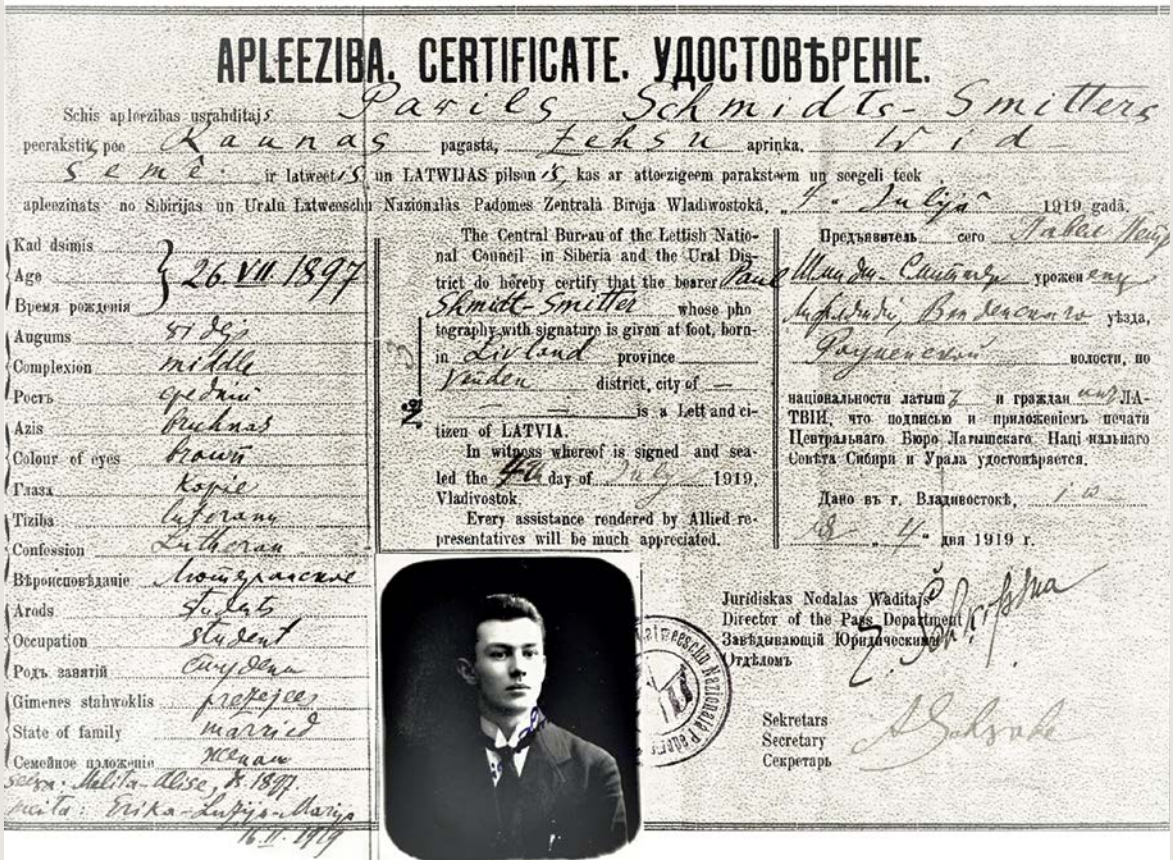 APLEEZIBA. CERTIFICATE. УДОСТОВѢРЕНІЕ.
Schis apleezibas usrahditajs Pawils Schmidts-Smitters
peerakstits pee Raunas pagasta, Zehsu aprinķa, Wid
semê. ir latweetis un LATWIJAS pilsonis, kas ar atteezigeem paraksteem un seegeli teek
apleezinats no Sibirijas un Uralu Latweeschu Nazionalās Padomes Zentralā Biroja Wladiwostokā, „4" Julijā 1919 gadā.
Kad dsimis
Age 26.VII.1897
Время рожденія
Augums widejs
Complexion middle
Ростъ средній
Azis bruhnas
Colour of eyes brown
Глаза каріе
Tiziba luteranu
Confession Lutheran
Вѣроисповѣданіе Лютеранское
Arods students
Occupation student
Родъ занятій студент
Gimenes stahwoklis prezejees
State of family married
Семейное положеніе женат
Melita-Alise, 1897.
meita: Erika-Luzija-Marija
16.II.1919
The Central Bureau of the Lettish Natio-
nal Council in Siberia and the Ural Dis-
trict do hereby certify that the bearer Paul
Shmidt Smitter whose pho
tography with signature is given at foot, born-
in Livland province
Venden district, city of —
— — is a Lett and ci-
tizen of LATVIA.
In witness whereof is signed and sea-
led the 4th day of July 1919,
Vladivostok.
Every assistance rendered by Allied re-
presentatives will be much appreciated.
Предъявитель сего Павел
Шмидт-Смиттер урожен
Венденскаго уѣзда,
Роуненской волости, по
національности латыш и граждан ЛА-
ТВІИ, что подписью и приложеніемъ печати
Центральнаго Бюро Латышскаго Наці нальнаго
Совѣта Сибири и Урала удостовѣряется.
Дано въ г. Владивостокѣ,
„4" дня 1919 г.
Juridiskas Nodaļas Waditajs
Director of the Pass Department
Завѣдывающій Юридическимъ
Отдѣломъ
Latweeschu Nazionala Padome
Sekretars
Secretary
Секретарь